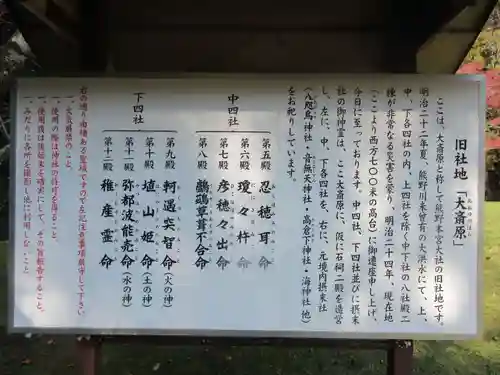 旧社地「大斎原」
ここは、「大斎原」と称して熊野本宮大社の旧社地です。
明治二十二年夏、熊野川未曽有の大洪水にて、上、
中、下各四社の内、上四社を除く中下社の八社殿二
棟が非常なる災害を蒙り、明治二十四年、現在地
（ここより西方七〇〇米の高台）に御遷座申し上げ、
今日に至っております。中四社、下四社並びに摂末
社の御神霊は、ここ大斎原に、仮に石祠二殿を造営
し、左に、中、下各四社を、右に、元境内摂末社
（八咫烏神社・音無天神社・高倉下神社・海神社 他）
をお祀りしています。
中四社
第五殿 忍穂耳命
第六殿 瓊々杵命
第七殿 彦穂々出命
第八殿 鸕鷀草葺不合命
下四社
第九殿 軻遇突智命（火の神）
第十殿 埴山姫命（土の神）
第十一殿 弥都波能売命（水の神）
第十二殿 稚産霊命
右の通り由緒ある聖域ですので左記注意事項厳守して下さい
一、火気厳禁のこと
一、使用の際は神社の許可を得ること。
一、使用後は後始末を確実にして、その旨報告すること。
一、みだりに各所を撮影し他に利用しないこと。